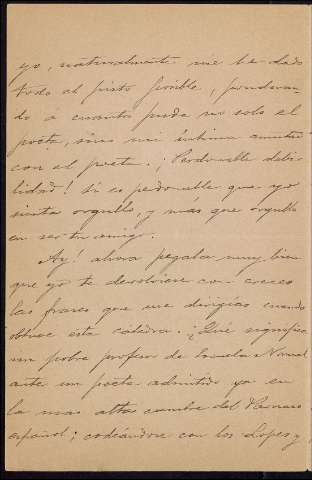 yo, naturalmente me he dado
todo el pisto posible, ponderan-
do á cuantos puedo no solo el
poeta, sino mi íntima amistad
con el poeta. ¡Perdonable debi-
lidad! Si es perdonable que yo
sienta orgullo, y más que orgullo
en ser tu amigo.
Ay! ahora pegaba muy bien
que yo te devolviese con creces
las frases que me dirigías cuando
obtuve esta cátedra. ¿Qué significa
un pobre profesor de Escuela Normal
ante un poeta admitido ya en
la mas alta cumbre del Parnaso
español; codeándose con los Lopes y